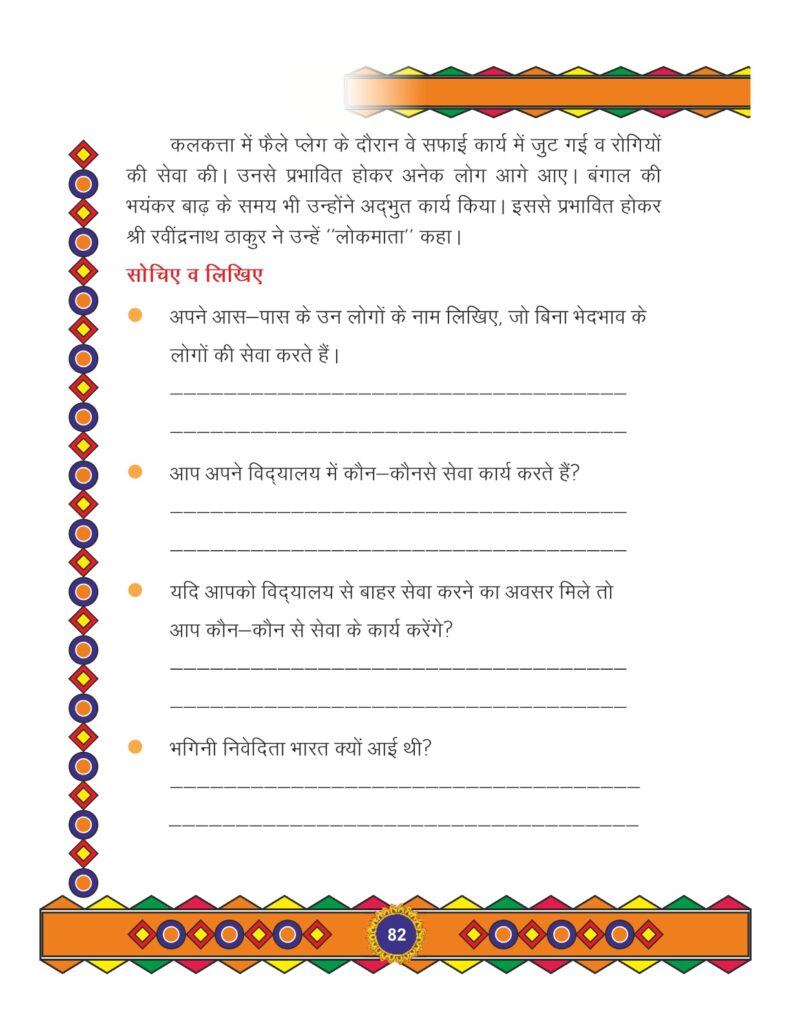 कलकत्ता में फैले प्लेग के दौरान वे सफाई कार्य में जुट गई व रोगियों
की सेवा की। उनसे प्रभावित होकर अनेक लोग आगे आए। बंगाल की
भयंकर बाढ़ के समय भी उन्होंने अद्‌भुत कार्य किया। इससे प्रभावित होकर
श्री रवींद्रनाथ ठाकुर ने उन्हें ‘‘लोकमाता’’ कहा।
सोचिए व लिखिए
अपने आस–पास के उन लोगों के नाम लिखिए, जो बिना भेदभाव के
लोगों की सेवा करते हैं।
आप अपने विद्‌यालय में कौन–कौनसे सेवा कार्य करते हैं?
यदि आपको विद्‌यालय से बाहर सेवा करने का अवसर मिले तो
आप कौन–कौन से सेवा के कार्य करेंगे?
भगिनी निवेदिता भारत क्यों आई थी?
82